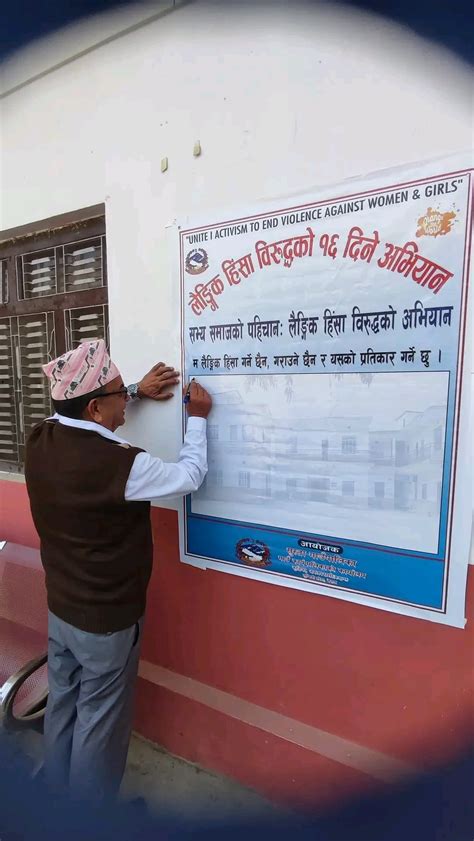 "UNITE I ACTIVISM TO END VIOLENCE AGAINST WOMEN & GIRLS"
लैङ्गिक हिंसा विरुद्धको १६ दिने अभियान
सभ्य समाजको पहिचान: लैङ्गिक हिंसा विरुद्धको अभियान
म लैङ्गिक हिंसा गर्ने छैन, गराउने छैन र यसको प्रतिकार गर्ने छु ।
आयोजक